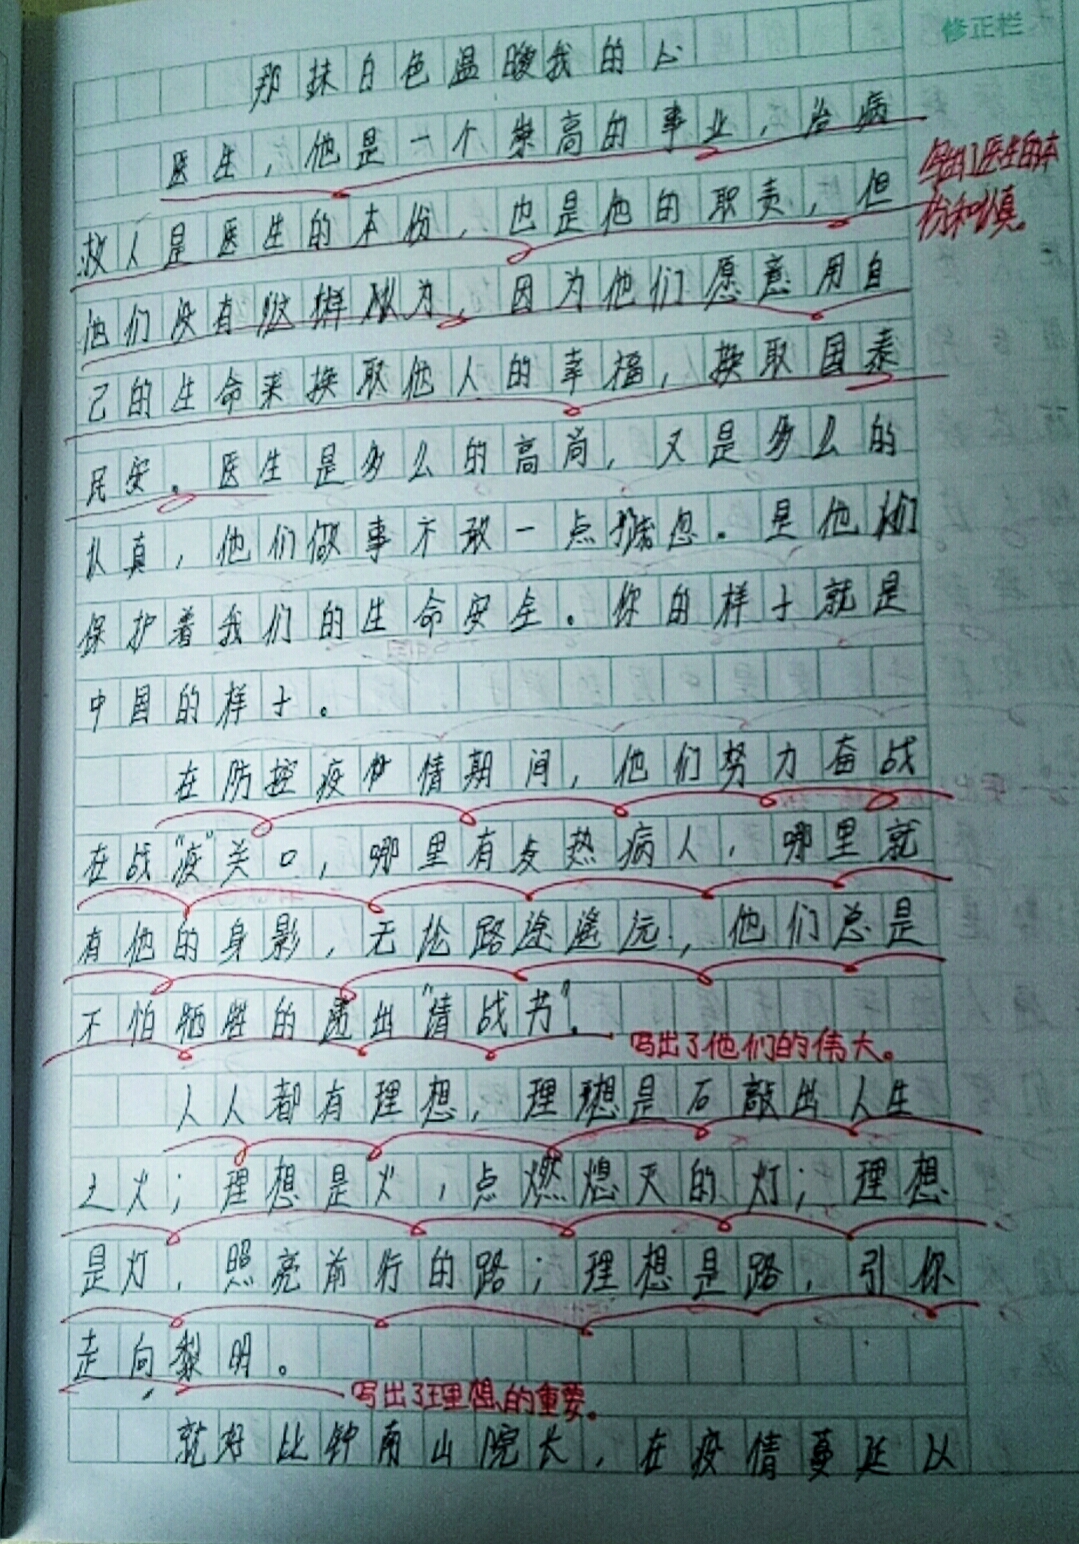 修正栏
那抹白色温暖我的心
医生，他是一个崇高的事业，治病
救人是医生的本份，也是他的职责，但
他们没有这样认为，因为他们愿意用自
己的生命来换取他人的幸福，换取国泰
民安。医生是多么的高尚，又是多么的
认真，他们做事不敢一点疏忽。是他们
保护着我们的生命安全。你的样子就是
中国的样子。
在防控疫情期间，他们努力奋战
在战“疫”关口，哪里有发热病人，哪里就
有他的身影，无论路途遥远，他们总是
不怕牺牲的递出“请战书”。
人人都有理想，理想是石敲出人生
之火；理想是火，点燃熄灭的灯；理想
是灯，照亮前行的路；理想是路，引你
走向黎明。
就好比钟南山院长，在疫情蔓延以
写出了医生的本
份和
写出了他们的伟大。
写出了理想的重要。